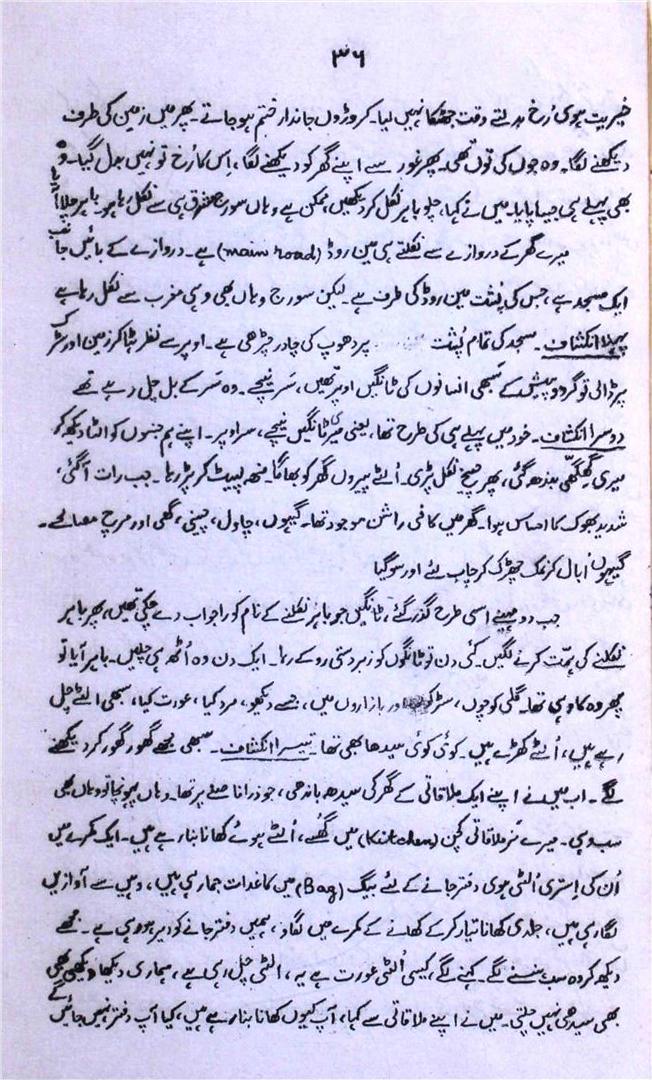 ۳۶
خیریت ہوی رُخ بدلتے وقت جھٹکا نہیں لیا۔ کروڑوں جاندار ختم ہو جاتے۔ پھر میں زمین کی طرف
دیکھنے لگا۔ وہ جوں کی توں تھی۔ پھر غور سے اپنے گھر کو دیکھنے لگا، اِس کا رُخ تو نہیں بدل گیا۔ وہ
بھی پہلے ہی جیسا پایا۔ میں نے کہا، چلو باہر نکل کر دیکھیں، ممکن ہے وہاں سورج مشرق ہی سے نکل رہا ہو۔ باہر چلا آیا
میرے گھر کے دروازے سے نکلتے ہی مین روڈ (main road) ہے۔ دروازے کے بائیں جانب
ایک مسجد ہے، جس کی پُشت مین روڈ کی طرف ہے۔ لیکن سورج وہاں بھی وہی مغرب سے نکل رہا ہے
پہلا انکشاف۔ مسجد کی تمام پُشت پر دھوپ کی چادر چڑھی ہے۔ اوپر سے نظر ہٹا کر زمین اور سڑک
پر ڈالی تو گردوپیش کے سبھی انسانوں کی ٹانگیں اوپر تھیں، سَر نیچے۔ وہ سَر کے بل چل رہے تھے
دوسرا انکشاف۔ خود میں پہلے ہی کی طرح تھا، یعنی میری ٹانگیں نیچے، سراو پر۔ اپنے ہم جنسوں کو الٹا دیکھ کر
میری گھِگھّی بندھ گئی، پھر چیخ نکل پڑی۔ اُلٹے پیروں گھر کو بھاگا۔ منھ لپیٹ کر پڑ رہا۔ جب رات آ گئی،
شدید بھوک کا احساس ہوا۔ گھر میں کافی راشن موجود تھا۔ گیہوں، چاول، چینی، گھی اور مرچ مصالحے۔
گیہوں اُبال کر نمک چھڑک کر چاب لئے اور سو گیا
جب دو مہینے اسی طرح گذر گئے، ٹانگیں جو باہر نکلنے کے نام کو را جواب دے چکی تھیں، پھر باہر
نکلنے کی ہِمّت کرنے لگیں۔ کئی دن تو ٹانگوں کو زبردستی روکے رہا۔ ایک دن وہ اُٹھ ہی چلیں۔ باہر آیا تو
پھر وہ کا وہی تھا۔ گلی کوچوں، سڑکو اور بازاروں میں، جسے دیکھو، مرد کیا، عورت کیا، سبھی الٹے چل
رہے ہیں، اُلٹے کھڑے ہیں۔ کوئی کوئی سیدھا بھی تھا۔ تیسرا انکشاف۔ سبھی مجھے گھور گھور کر دیکھنے
لگے۔ اب میں نے اپنے ایک ملاقاتی کے گھر کی سیدھ باندھی، جو ذرا فاصلے پر تھا۔ وہاں پہونچا تو وہاں بھی
سب وہی۔ میرے نَر ملاقاتی کچن (Kitchen) میں گھُسے، اُلٹے ہوئے کھانا بنا رہے ہیں۔ ایک کمرے میں
اُن کی اِستری اُلٹی ہوی دفتر جانے کے لئے بیگ (Bag) میں کاغذات جما رہی ہیں، وہیں سے آوازیں
لگا رہی ہیں، جلدی کھانا تیار کر کے کھانے کے کمرے میں لگاؤ، ہمیں دفتر جانے کو دیر ہو رہی ہے۔ مجھے
دیکھ کر وہ سب ہنسنے لگے۔ کہنے لگے، کیسی اُلٹی عورت ہے یہ، الٹی چل رہی ہے، ہماری دیکھا دیکھی بھی
بھی سیدھی نہیں چلتی۔ میں نے اپنے ملاقاتی سے کہا، آپ کیوں کھانا بنا رہے ہیں، کیا آپ دفتر نہیں جائیں گے